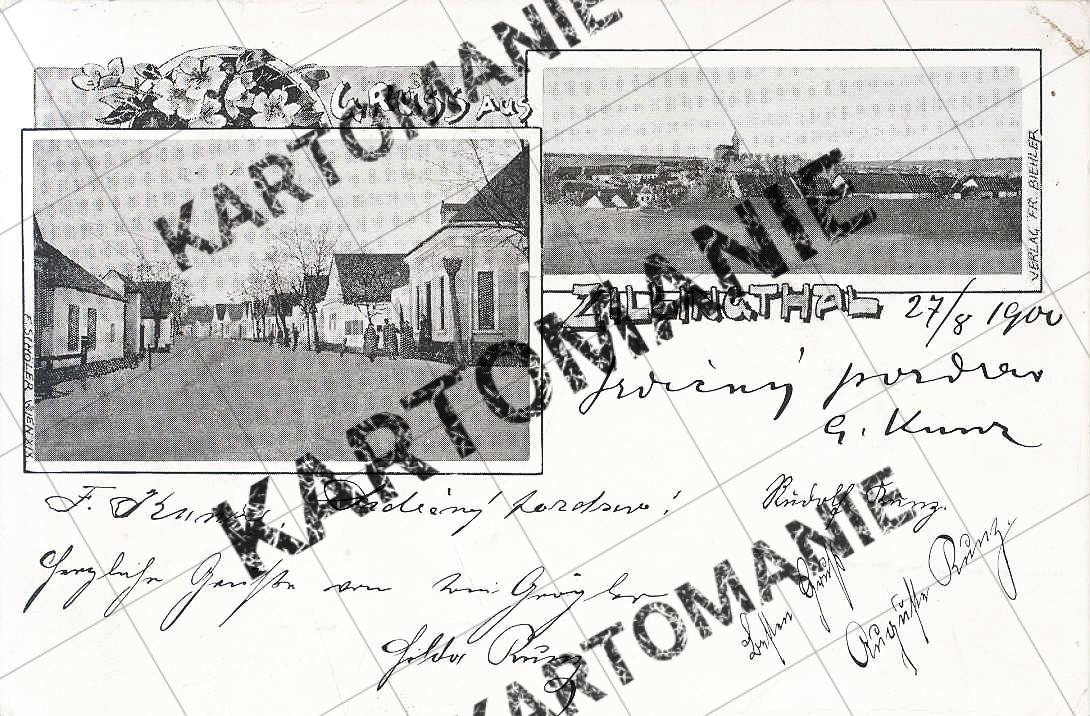 GRUSS AUS
ZILLINGTHAL
VERLAG FR. BIEHLER
F. SCHOLER WIEN XIX.
27/8 1900
Srdečný pozdrav
G. Kunz
F. Kunz. Srdečný pozdrav!
Rudolf Kunz.
Herzliche Grüße von
Hilda Kunz
Besten Gruß
Auguste Kunz.
KARTOMANIE
KARTOMANIE
KARTOMANIE
KARTOMANIE
KARTOMANIE